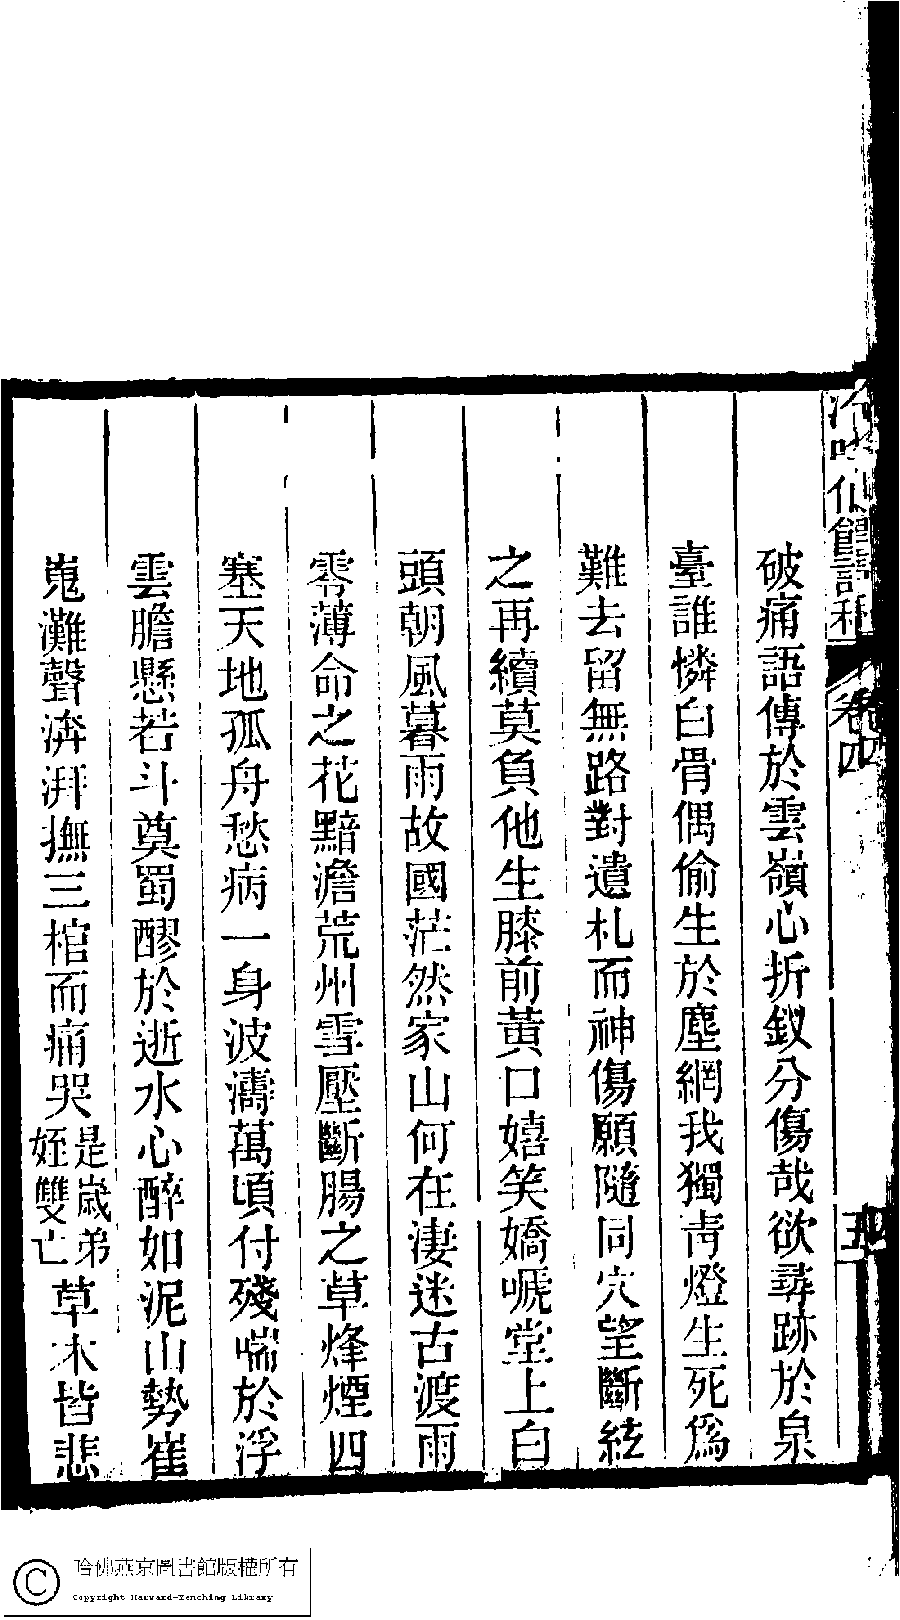 冷吟仙館詩稿
卷四
五
破痛語傳於雲嶺心折釵分傷哉欲尋跡於泉
臺誰憐白骨偶偷生於塵網我獨靑燈生死爲
難去留無路對遺札而神傷願隨同穴望斷絃
之再續莫負他生膝前黃口嬉笑嬌嗁堂上白
頭朝風暮雨故國茫然家山何在淒迷古渡雨
零薄命之花黯澹荒州雪壓斷腸之草烽煙四
塞天地孤舟愁病一身波濤萬頃付殘喘於浮
雲膽懸若斗奠蜀醪於逝水心醉如泥山勢崔
嵬灘聲渀湃撫三棺而痛哭是歲弟姪雙亡草木皆悲
哈佛燕京圖書館版權所有
Copyright Harvard-Yenching Library